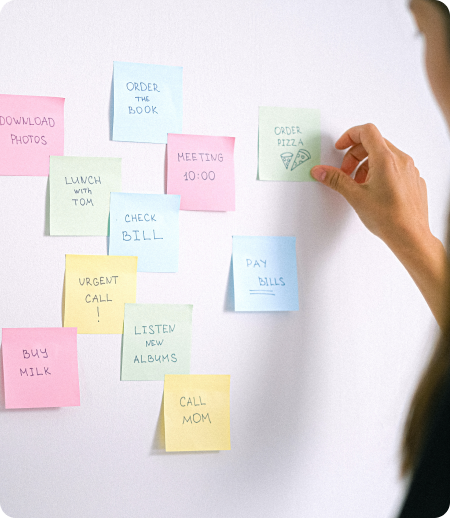 ORDER
THE
BOOK
DOWNLOAD
PHOTOS
MEETING
10:00
ORDER
PIZZA
LUNCH
with
TOM
CHECK
BILL
PAY
BILLS
URGENT
CALL
!
LISTEN
NEW
ALBUMS
BUY
MILK
CALL
MOM